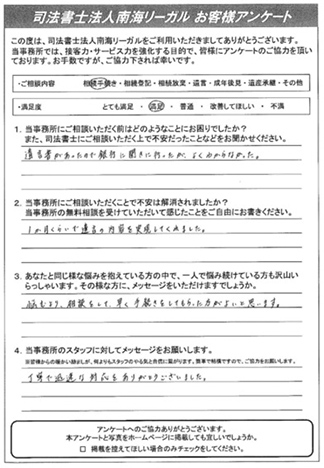 司法書士法人南海リーガル お客様アンケート
この度は、司法書士法人南海リーガルをご利用いただきましてありがとうございます。
当事務所では、接客力・サービス力を強化する目的で、皆様にアンケートのご協力を頂い
ております。お手数ですが、ご協力下されば幸いです。
・ご相談内容 相続手続き・相続登記・相続放棄・遺言・成年後見・遺産承継・その他
・満足度 とても満足 ・ 満足 ・ 普通 ・ 改善してほしい ・ 不満
1. 当事務所にご相談いただく前はどのようなことにお困りでしたか?
また、司法書士にご相談いただく上で不安だったことなどをお聞かせください。
遺言書があったので銀行に聞きに行ったが、よくわからなかった。
2. 当事務所にご相談いただくことで不安は解消されましたか?
当事務所の無料相談を受けていただいて感じたことをご自由にお書きください。
1か月くらいで遺言の内容を実現してくれました。
3. あなたと同じ様な悩みを抱えている方の中で、一人で悩み続けている方も沢山い
らっしゃいます。その様な方に、メッセージをいただけますでしょうか。
悩むより、相談をして、早く手続きをしてもらった方がよいと思います。
4. 当事務所のスタッフに対してメッセージをお願いします。
※皆様からの暖かい励ましが、何よりもスタッフのやる気と自信に繋がります。簡単で結構ですので、ご協力をお願いします。
丁寧で迅速な対応をありがとうございました。
アンケートへのご協力ありがとうございます。
本アンケートと写真をホームページに掲載しても宜しいでしょうか。
□ 掲載を控えてほしい場合のみチェックをしてください。